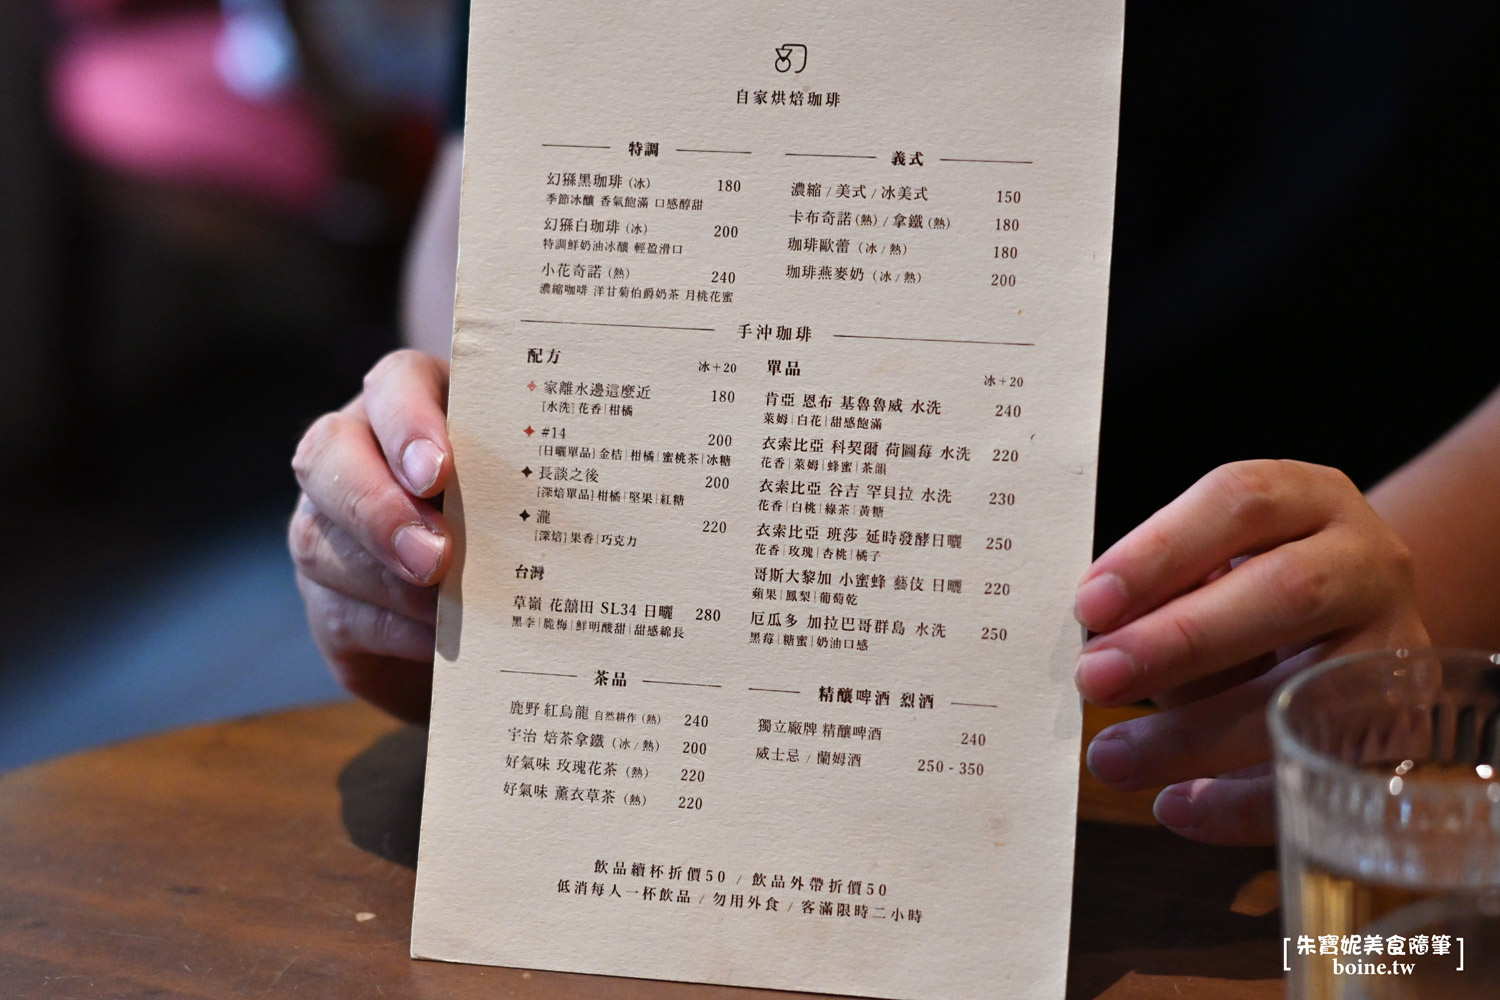 自家烘焙珈琲
特調
幻猻黑珈琲(冰) 180
季節冰釀 香氣飽滿 口感醇甜
幻猻白珈琲(冰) 200
特調鮮奶油冰釀 輕盈滑口
小花奇諾(熱) 240
濃縮咖啡 洋甘菊伯爵奶茶 月桃花蜜
義式
濃縮/美式/冰美式 150
卡布奇諾(熱)/拿鐵(熱) 180
珈琲歐蕾(冰/熱) 180
珈琲燕麥奶(冰/熱) 200
手沖珈琲
配方
冰+20
家離水邊這麼近 180
[水洗]花香|柑橘
#14 200
[日曬單品]金桔|柑橘|蜜桃茶|冰糖
長談之後 200
[深焙單品]柑橘|堅果|紅糖
瀧 220
[深焙]果香|巧克力
台灣
草嶺 花囍田 SL34 日曬 280
黑李|脆梅|鮮明酸甜|甜感綿長
單品
冰+20
肯亞 恩布 基魯魯威 水洗 240
萊姆|白花|甜感飽滿
衣索比亞 科契爾 荷圖莓 水洗 220
花香|萊姆|蜂蜜|茶韻
衣索比亞 谷吉 罕貝拉 水洗 230
花香|白桃|綠茶|黃糖
衣索比亞 班莎 延時發酵日曬 250
花香|玫瑰|杏桃|橘子
哥斯大黎加 小蜜蜂 藝伎 日曬 220
蘋果|鳳梨|葡萄乾
厄瓜多 加拉巴哥群島 水洗 250
黑莓|糖蜜|奶油口感
茶品
鹿野 紅烏龍 自然耕作(熱) 240
宇治 焙茶拿鐵(冰/熱) 200
好氣味 玫瑰花茶(熱) 220
好氣味 薰衣草茶(熱) 220
精釀啤酒 烈酒
獨立廠牌 精釀啤酒 240
威士忌/蘭姆酒 250-350
飲品續杯折價50/飲品外帶折價50
低消每人一杯飲品/勿用外食/客滿限時二小時
[朱寶妮美食隨筆]
boine.tw